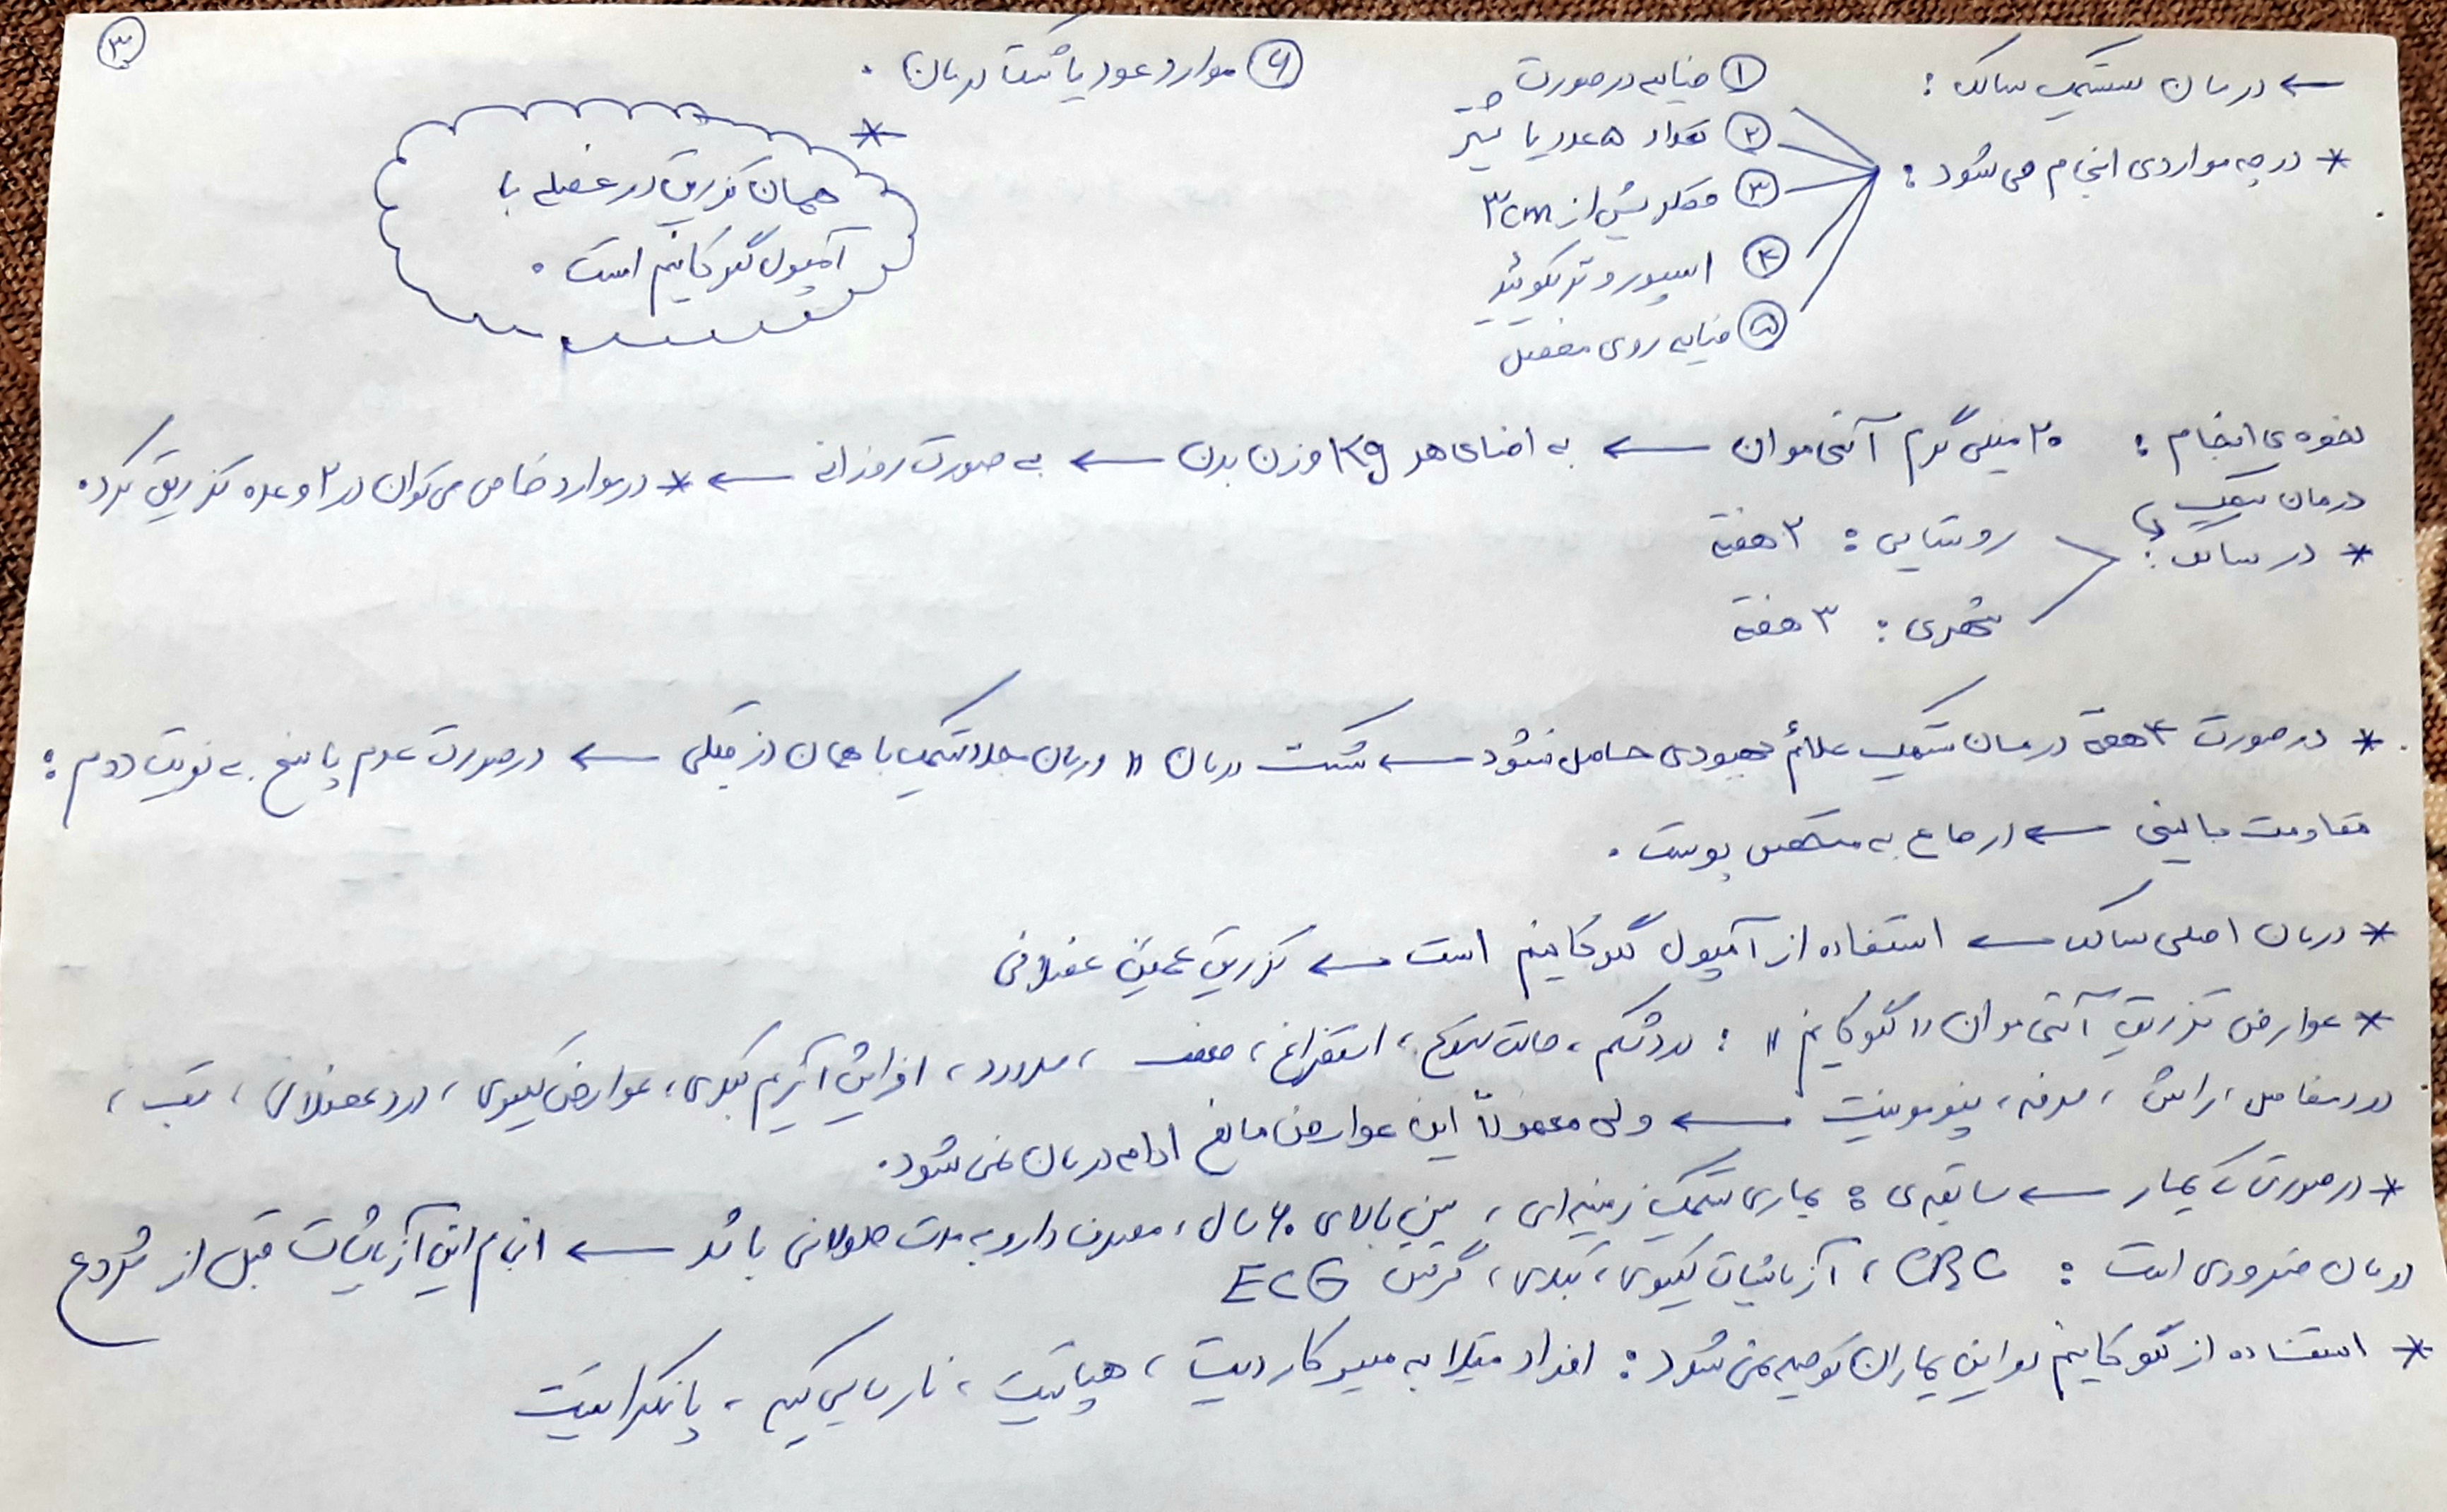 ۳
← درمان سیستمیک سالک :
* در چه مواردی انجام می شود :
① ضایعه در صورت
② تعداد ۵ عدد یا بیشتر
③ قطر بیش از ۳cm
④ اسپوروتریکوئید
⑤ ضایعه روی مفصل
⑥ موارد عود یا شکست درمان .
*
همان تزریق در عضله با
آمپول گلوکانتیم است .
نحوه ی انجام : ۲۰ میلی گرم آنتی موان ← به ازای هر Kg وزن بدن ← به صورت روزانه ← * در موارد خاص می توان در ۲ وعده تزریق کرد.
درمان سیستمیک
* در سالک :
روستایی : ۲ هفته
شهری : ۳ هفته
* در صورت ۴ هفته درمان سیستمیک علائم بهبودی حاصل نشود ← شکست درمان " درمان مجدد سیستمیک با همان دز قبلی ← در صورت عدم پاسخ به نوبت دوم :
مقاومت بالینی ← ارجاع به متخصص پوست .
* درمان اصلی سالک ← استفاده از آمپول گلوکانتیم است ← تزریق عمیق عضلانی
* عوارض تزریق آنتی موان " گلوکانتیم " : درد شکم ، حالت تهوع ، استفراغ ، ضعف ، سردرد ، افزایش آنزیم کبدی ، عوارض کلیوی ، درد عضلانی ، تب ،
درد مفاصل ، راش ، سرفه ، پنومونیت ← ولی معمولاً این عوارض مانع ادامه درمان نمی شود.
* در صورتی که بیمار ← سابقه ی : بیماری سیستمیک زمینه ای ، سن بالای ۶۰ سال ، مصرف دارو به مدت طولانی باشد ← انجام این آزمایشات قبل از شروع
درمان ضروری است : CBC ، آزمایشات کلیوی ، کبدی ، گرفتن ECG
* استفاده از گلوکانتیم در این بیماران توصیه نمی شود : افراد مبتلا به میوکاردیت ، هپاتیت ، نارسایی کلیه ، پانکراتیت